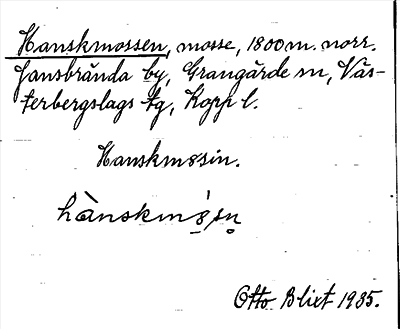 Hanskmossen, mosse, 1800 m. norr.
Jansbrända by, Grangärde sn, Väs-
terbergslags tg, Kopp l.
Hanskmosin.
Otto Blixt 1935.